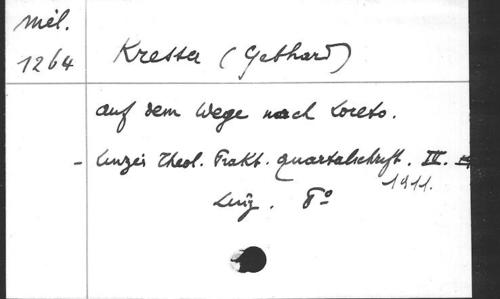 Mél.
1264
Kresser (Gebhard)
auf dem Wege nach Loreto.
- Linzer Theol. Prakt. Quartalschrift. IV.
1911.
Linz. 8°